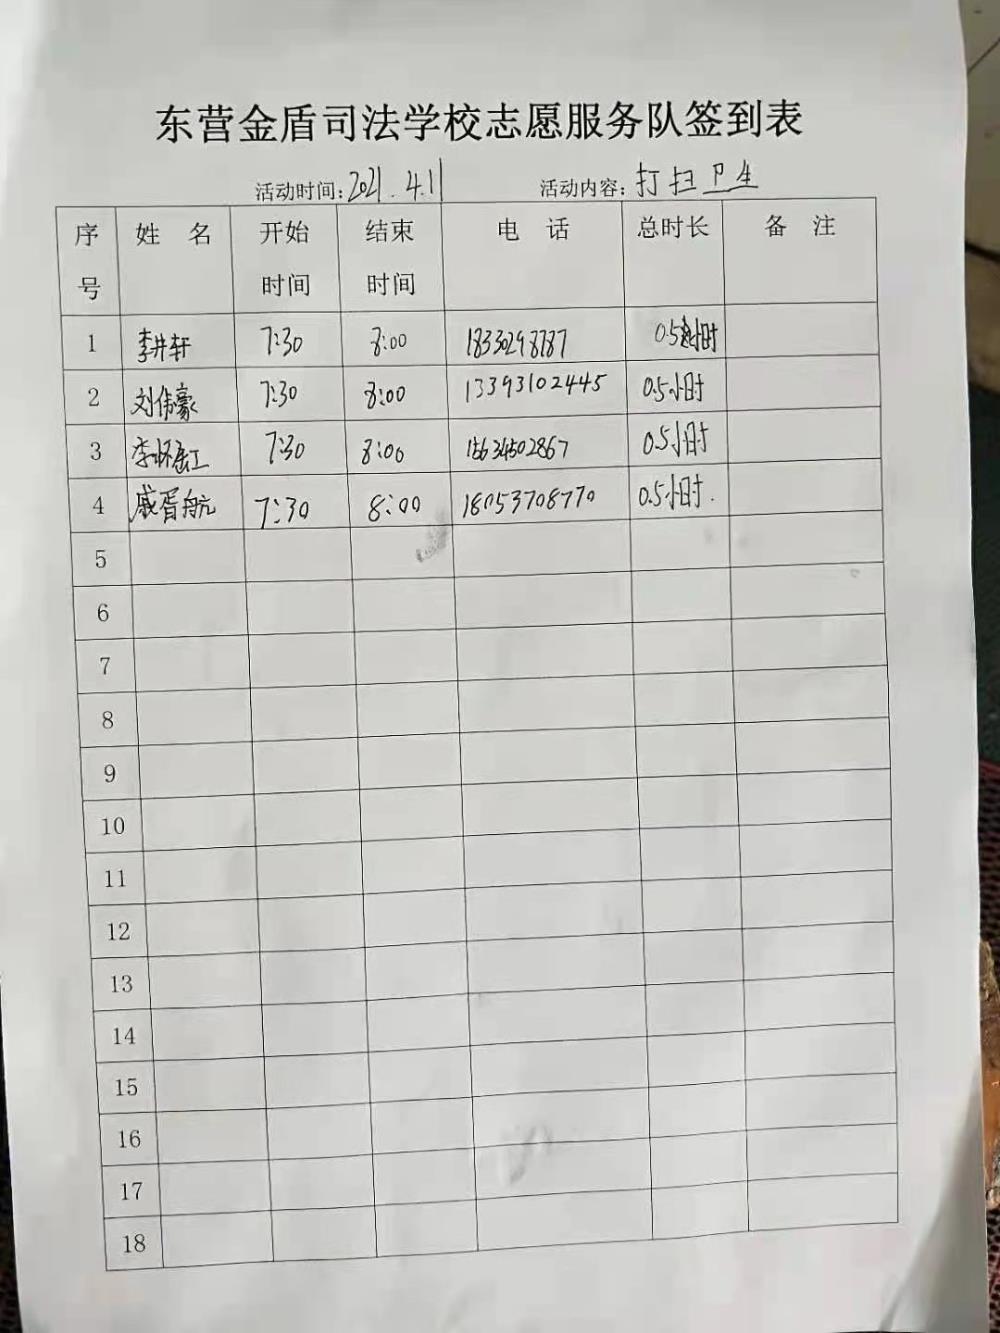 东营金盾司法学校志愿服务队签到表
活动时间:2021.4.11 活动内容:打扫卫生
序号 姓名 开始时间 结束时间 电话 总时长 备注
1 李井轩 7:30 8:00 0.5小时
2 刘伟豪 7:30 8:00 13393102445 0.5小时
3 7:30 8:00 15634502867 0.5小时
4 戚晋航 7:30 8:00 18053708770 0.5小时.
5
6
7
8
9
10
11
12
13
14
15
16
17
18